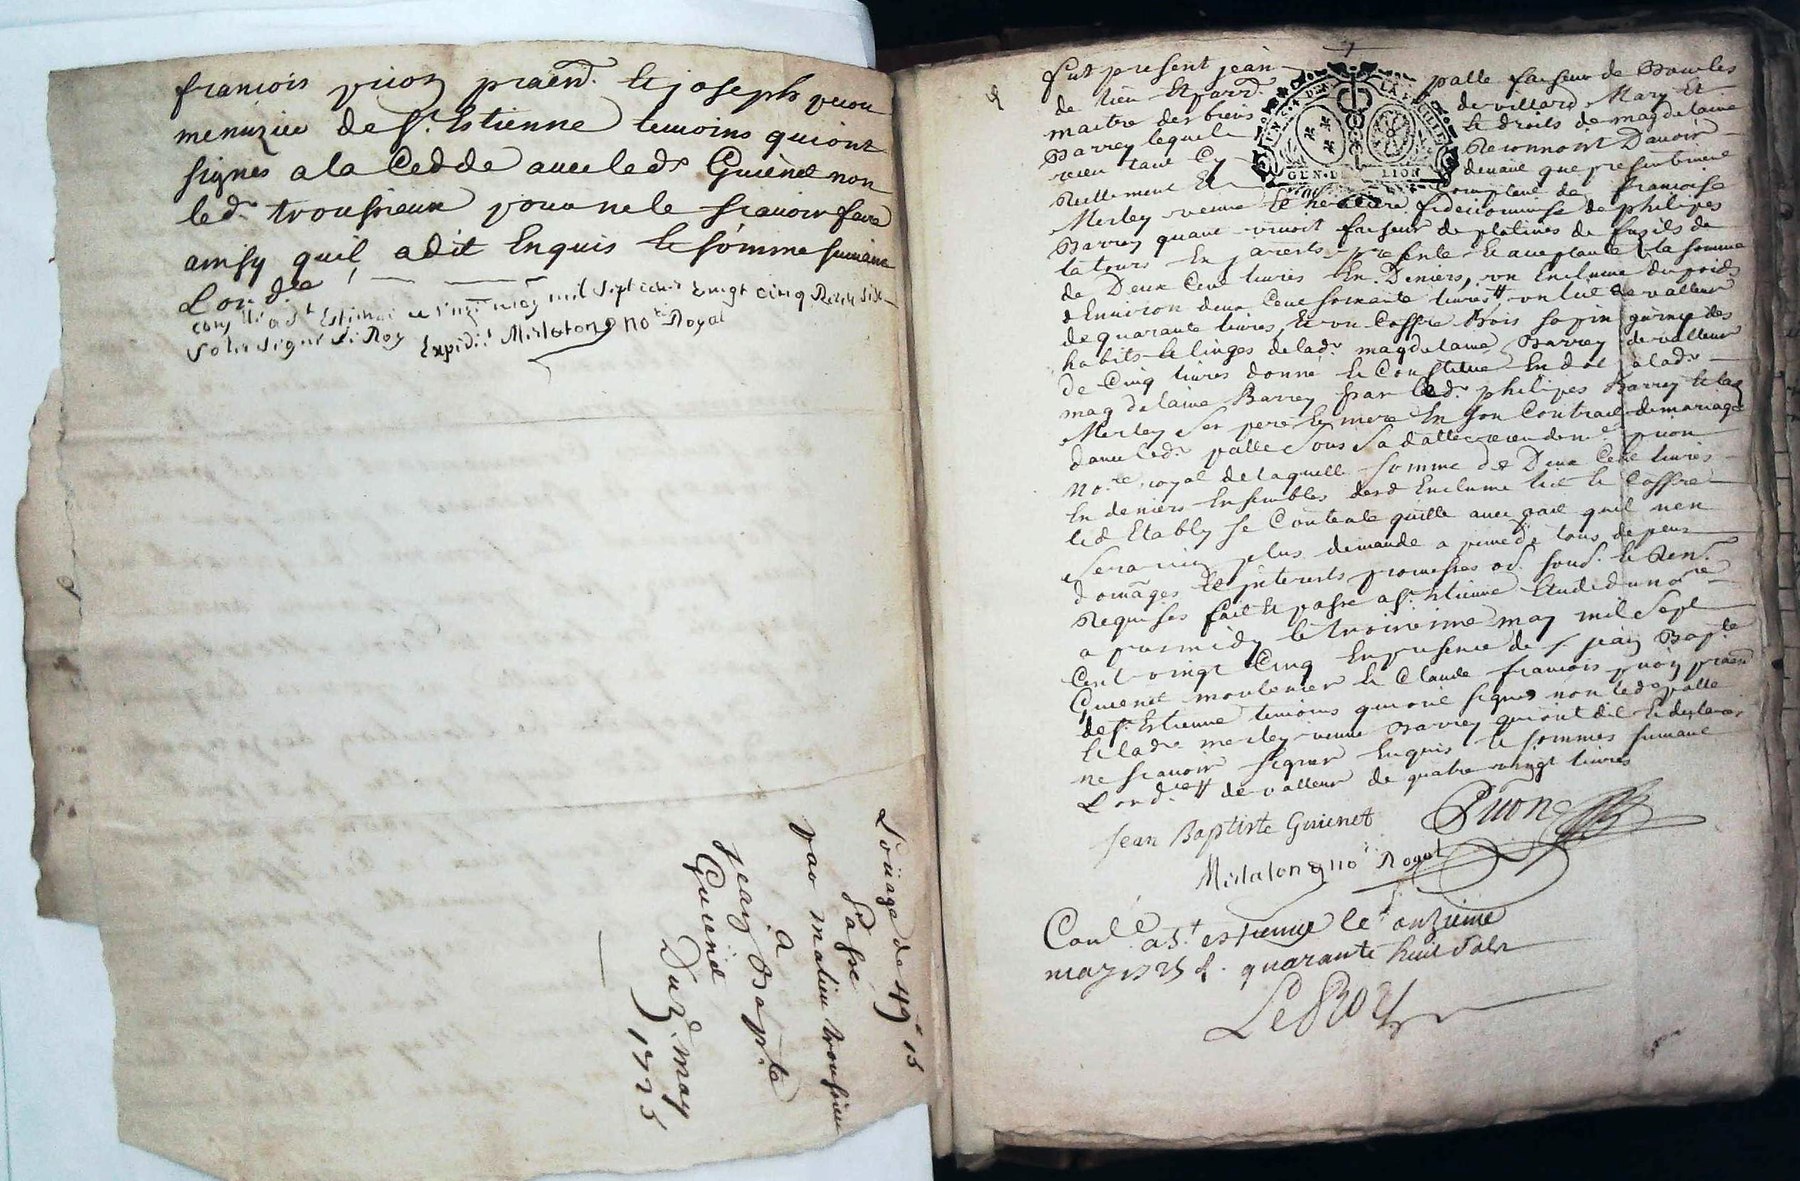 francois prion praend. et joseph prion
menuzier de st. Estienne temoins qui ont
signés a la Cedde avec led. Guienet non
led. troussieux pour ne le scavoir faire
ainsy quil a dit Enquis et somme suivant
Lord.ce
a st Estienne mil sept cent vingt cinq Receu six
sols signé Le Roy Expedié no.re Royal
Loüage de 49# 15
Passé
par matieu troussieu
a
jean Bapt.te
Guienet
Du 2d. may
1725
fut present jean palle faiseur de Boucles
de lieu Et parr. de villard Mary Et
maitre des biens et droits de magdelaine
Barrey lequel Reconnoit Davoir
receu tant Cy devant que presentement
Reellement Et Comptant de françoise
Merley veuve et heritiere fideicomisse de philipes
Barrey quant vivoit faiseur de platines de fusils de
la tour En jarests presente et aceptante la somme
de Deux Cent livres En Deniers, un Enclume du poids
denviron deux Cent soixante livres un lit de valleur
de quarante livres, et un Coffre Bois sapin garnie des
habits et linges de lad. magdelaine Barrey de valleur
de Cinq livres donné et Constitué En dot a lad.
magdelaine Barrey par led. philipes Barrey et lad.
Merley ses pere et mere En son Contract de mariage
avec led. palle sous sa datte receu de me. prion
No.re royal de laquelle somme de Deux Cent livres
En deniers Ensembles desd. Enclume lit et Coffre
led Etably se Contente quitte avec pact quil nen
sera rien plus demandé a peine de tous depens
domages et interests promesses ob. soud. et Ren.
Requises fait et passé a st. Estienne Etude dun.re
apres midy le troisieme may mil sept
Cent vingt Cinq En presence de s. jean Bap.te
Guienet moulenier et Claude francois prion praend
de st. Estienne temoins qui ont signes non led. palle
et lad. merley veuve Barrey qui ont dit et declaré
ne scavoir signer Enquis et sommes suivant
Lord.ce de valleur de quatre vingt livres
Jean Baptiste Guienet Prion
no.re Royal
Con.lé a St estienne le onzieme
may 1725 R. quarante huit sols
LeRoy